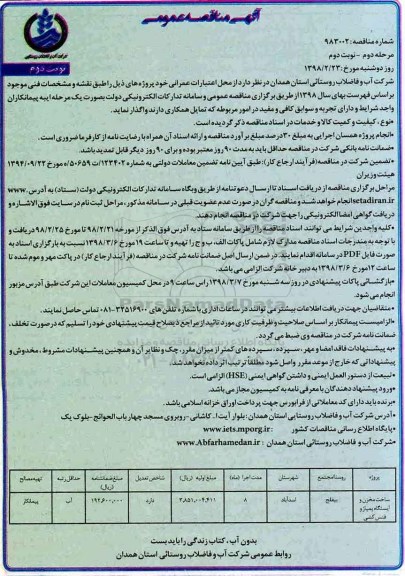 آگهی مناقصه عمومی
نوبت دوم
شماره مناقصه: ۹۸۳۰۰۲
مرحله دوم - نوبت دوم
روز دوشنبه مورخ: ۱۳۹۸/۲/۲۳
شرکت آب و فاضلاب روستائی استان همدان در نظر دارد از محل اعتبارات عمرانی خود پروژه های ذیل را طبق نقشه و مشخصات فنی موجود
بر اساس فهرست بهای سال ۱۳۹۸ از طریق برگزاری مناقصه عمومی و سامانه تدارکات الکترونیکی دولت بصورت یک مرحله ایبه پیمانکاران
واجد شرایط و دارای تجربه و سوابق کافی و مفید در امور مربوطه که تمایل همکاری دارند واگذار نماید.
•نوع، کیفیت و کمیت کالا و خدمات در اسناد مناقصه ذکر گردیده است.
•انجام پروژه همسان اجرایی به مبلغ ۳۰ درصد مبلغ برآورد مناقصه و ارائه اسناد آن همراه با رضایت نامه از کارفرما ضروری است.
•ضمانت نامه بانکی شرکت در مناقصه حداقل باید به مدت ۹۰ روز معتبر بوده و برای ۹۰ روز دیگر قابل تمدید باشد.
•تضمین شرکت در مناقصه(فرآیند ارجاع کار): طبق آیین نامه تضمین معاملات دولتی به شماره ۱۲۳۴۰۲/ت ۵۰۶۵۹ه مورخ ۱۳۹۴/۰۹/۲۲
هیئت وزیران
مراحل برگزاری مناقصه از دریافت اسناد تا ارسال دعوتنامه از طریق وبگاه سامانه تدارکات الکترونیکی دولت (ستاد) به آدرس www.
setadiran.ir انجام خواهد شد و مناقصه گران در صورت عدم عضویت قبلی در سامانه مذکور، مراحل ثبت نام در سایت فوق الاشاره و
دریافت گواهی امضا الکترونیکی را جهت شرکت در مناقصه انجام دهند.
•کلیه واجدین شرایط می توانند اسناد مناقصه را از طریق سامانه ستاد به آدرس فوق الذکر از مورخه ۹۸/۲/۲۱ تا مورخ ۹۸/۲/۲۵ دریافت و
با توجه به مندرجات اسناد مناقصه مدارک لازم شامل پاکات الف، ب و ج را تهیه و تا ساعت ۱۹ مورخ ۱۳۹۸/۳/۶ نسبت به بارگزاری اسناد به
صورت فایل PDF در سامانه اقدام نمایند. در ضمن ارسال اصل ضمانت نامه شرکت در مناقصه (فرآیند ارجاع کار) در پاکت مهر و موم شده تا
ساعت ۱۲ مورخ ۱۳۹۸/۳/۶ به دبیر خانه شرکت الزامی می باشد.
•بازگشائی پاکات پیشنهادی در روز سه شنبه مورخ ۱۳۹۸/۳/۷ راس ساعت ۹ در محل کمیسیون معاملات این شرکت طبق آدرس مزبور
انجام می شود.
•متقاضیان جهت دریافت اطلاعات بیشتر می توانند در ساعات اداری با شماره تلفن های ۳۲۵۱۶۹۰-۰۸۱ تماس حاصل نمایند.
•الزامیست پیمانکار بر اساس صلاحیت و ظرفیت کاری مورد تائید از مراجع ذیصلاح قیمت پیشنهادی خود را تسلیم که در صورت تخلف،
ضمانت نامه شرکت در مناقصه وی ضبط می گردد.
•به پیشنهادات فاقد امضا و مهر، سپرده، سپرده های کمتر از میزان مقرر، چک و نظایر آن و همچنین پیشنهادات مشروط، مخدوش و
پیشنهاداتی که خارج از موعد مقرر واصل شود مطلقا ترتیب اثر داده نخواهد شد.
•تبعیت از دستورالعمل ایمنی و داشتن گواهی ایمنی (HSE) الزامی است.
•ورود پیشنهاد دهندگان با معرفی نامه به کمیسیون مجاز می باشد.
•برنده باید دارای کد معاملاتی از فرابورس جهت پرداخت اوراق خزانه اسلامی باشد.
•آدرس شرکت آب و فاضلاب روستایی استان همدان: بلوار آیت ا.. کاشانی -روبروی مسجد چهار باب الحوائج -بلوک یک
•پایگاه اطلاع رسانی مناقصات کشور www.iets.mporg.ir
•شرکت آب و فاضلاب روستائی استان همدان : www.Abfarhamedan.ir
پروژه روستا/مجتمع شهرستان مدت اجرا (ماه) مبلغ اولیه (ریال) شاخص تعدیل مبلغ ضمانتنامه (ریال) حداقل رتبه تهیه مصالح
ساخت مخزن و ایستگاه پمپاژ و فنس کشی اسدآباد ۸ ۳،۸۵۱،۰۰۴،۴۱۱ دارد ۱۹۲،۶۰۰،۰۰۰ آب پیمانکار
بدون آب، کتاب زندگی را باید بست
روابط عمومی شرکت آب و فاضلاب روستائی استان همدان